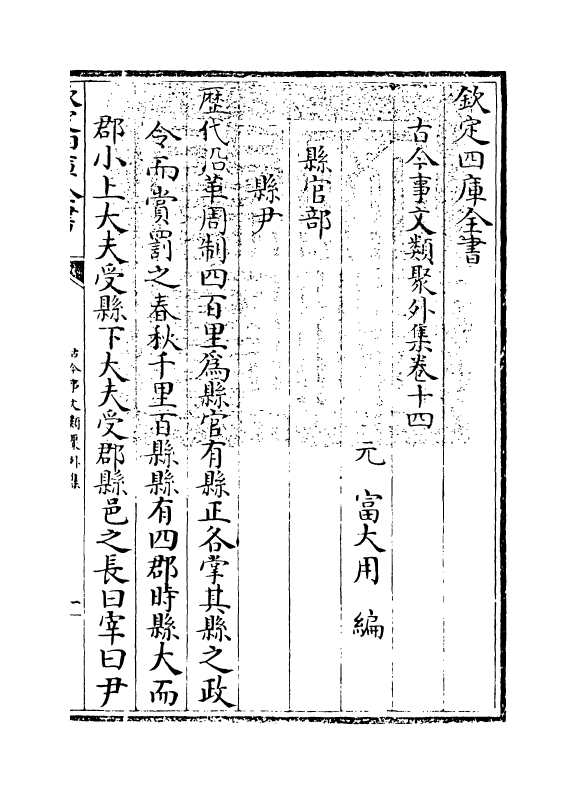 欽定四庫全書
古今事文類聚外集卷十四
元 富大用 編
縣官部
縣尹
歴代沿革周制四百里爲縣官有縣正各掌其縣之政
令而賞罰之春秋千里百縣縣有四郡時縣大而
郡小上大夫受縣下大夫受郡縣邑之長曰宰曰尹
欽定四庫全書
古今事文類聚外集
一